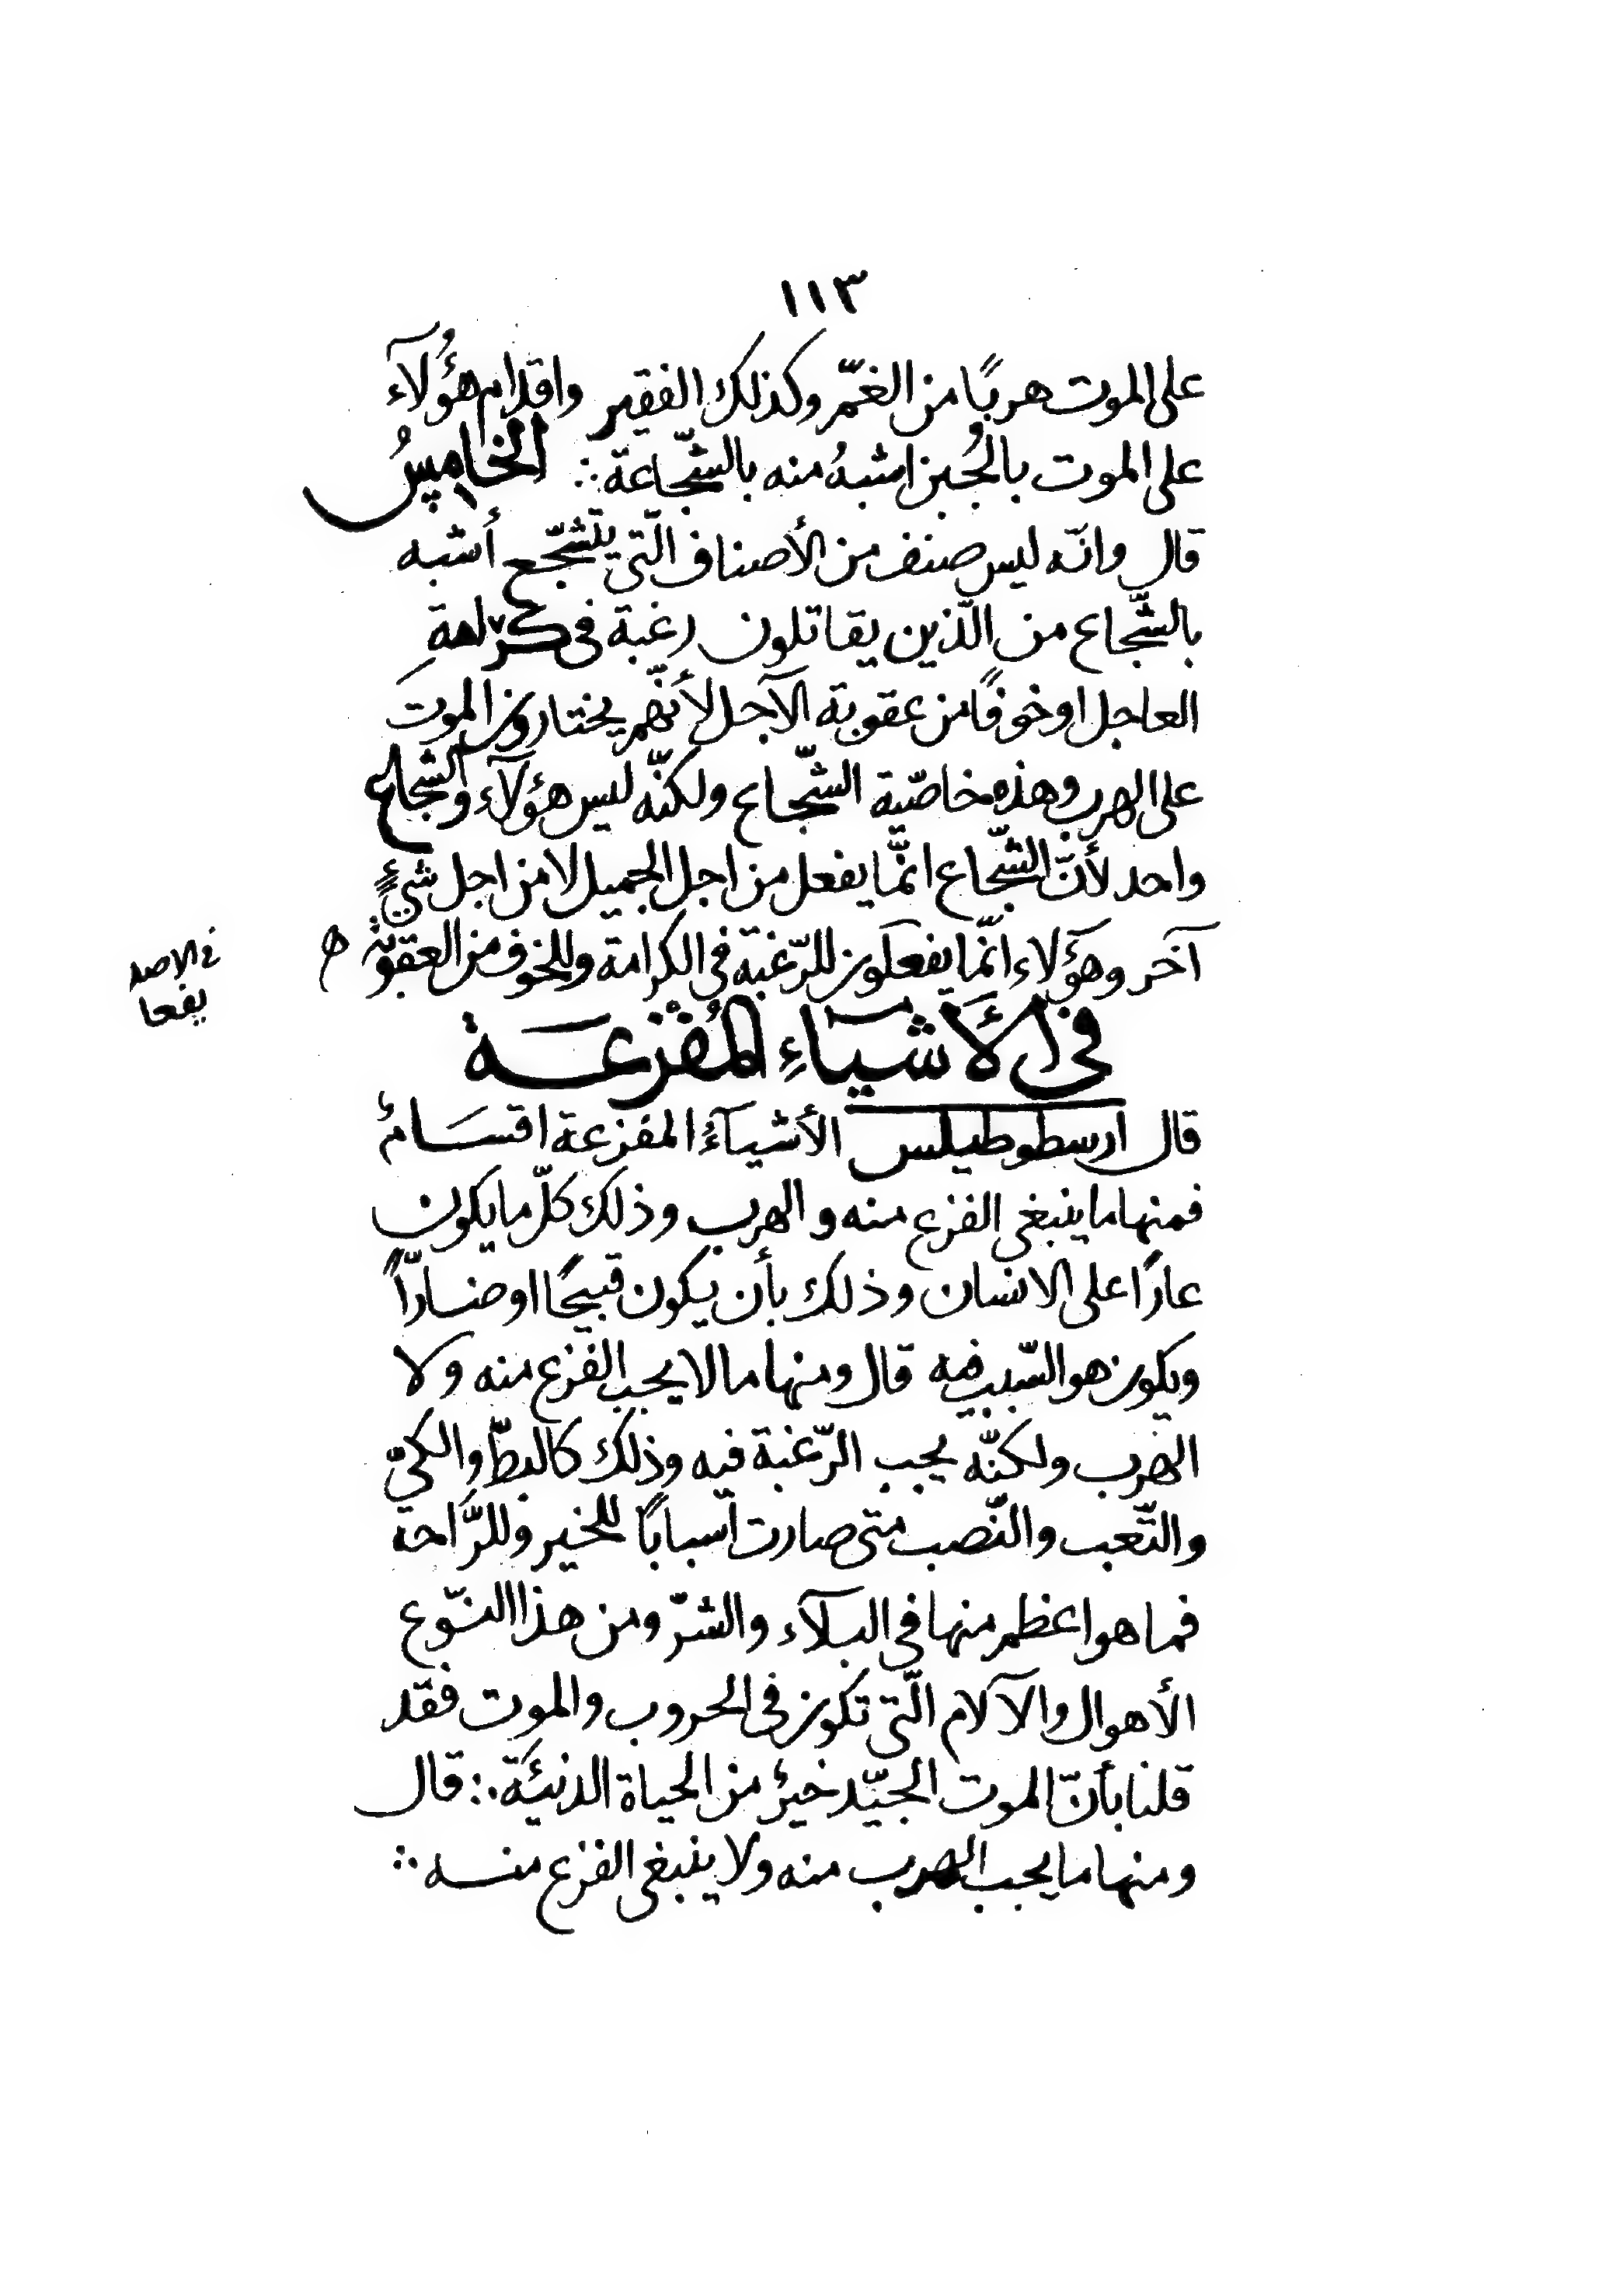 ١١٣
على الموت هربًا من الغمّ وكذلك الفقير واقدام هؤُلآء
على الموت بالجُبن اشبهُ منه بالشّجاعة ∴ الخامِسُ
قال وانّه ليس صنف من الأصناف الّتى يتشجّع أشبه
بالشّجاع من الّذين يقاتلون رغبة فى كرامةِ
العاجل او خوفًا من عقوبة الآجل لأنّهم يختارون الموت
على الهرب وهذه خاصّية الشّجاع ولكنّه ليس هؤلآء والشجاع
واحد لأنّ الشّجاع انّما يفعل من اجل الجميل لا من اجل شئٍ
آخر وهؤلاء انّما يفعلون للرّغبة فى الكرامة وللخوف من العقوبة ه
فى الاصل
يفعا
فى الأَشيَآءِ المُفْزِعَة
قال ارسطوطيلس الأشيآءُ المفزعة اقسَامٌ
فمنها ما ينبغى الفزع منه والهرب وذلك كلّ ما يكون
عارًا على الانسان وذلك بأن يكون قبيحًا او ضارّاً
ويكون هو السّبب فيه قال ومنها ما لا يجب الفزع منه ولا
الهرب ولكنّه يجب الرّغبة فيه وذلك كالبطّ والكىّ
والتّعب والنّصب متى صارت أسبابًا للخير وللرَّاحة
فما هو اعظم منها فى البلآء والشرّ ومن هذا النّوع
الأهوال والآلام الّتى تكون فى الحروب والموت فقد
قلنا بأنّ الموت الجيّد خيرٌ من الحياة الدنيئَة ∴ قال
ومنها ما يجب الهرب منه ولا ينبغى الفزع منه ∴